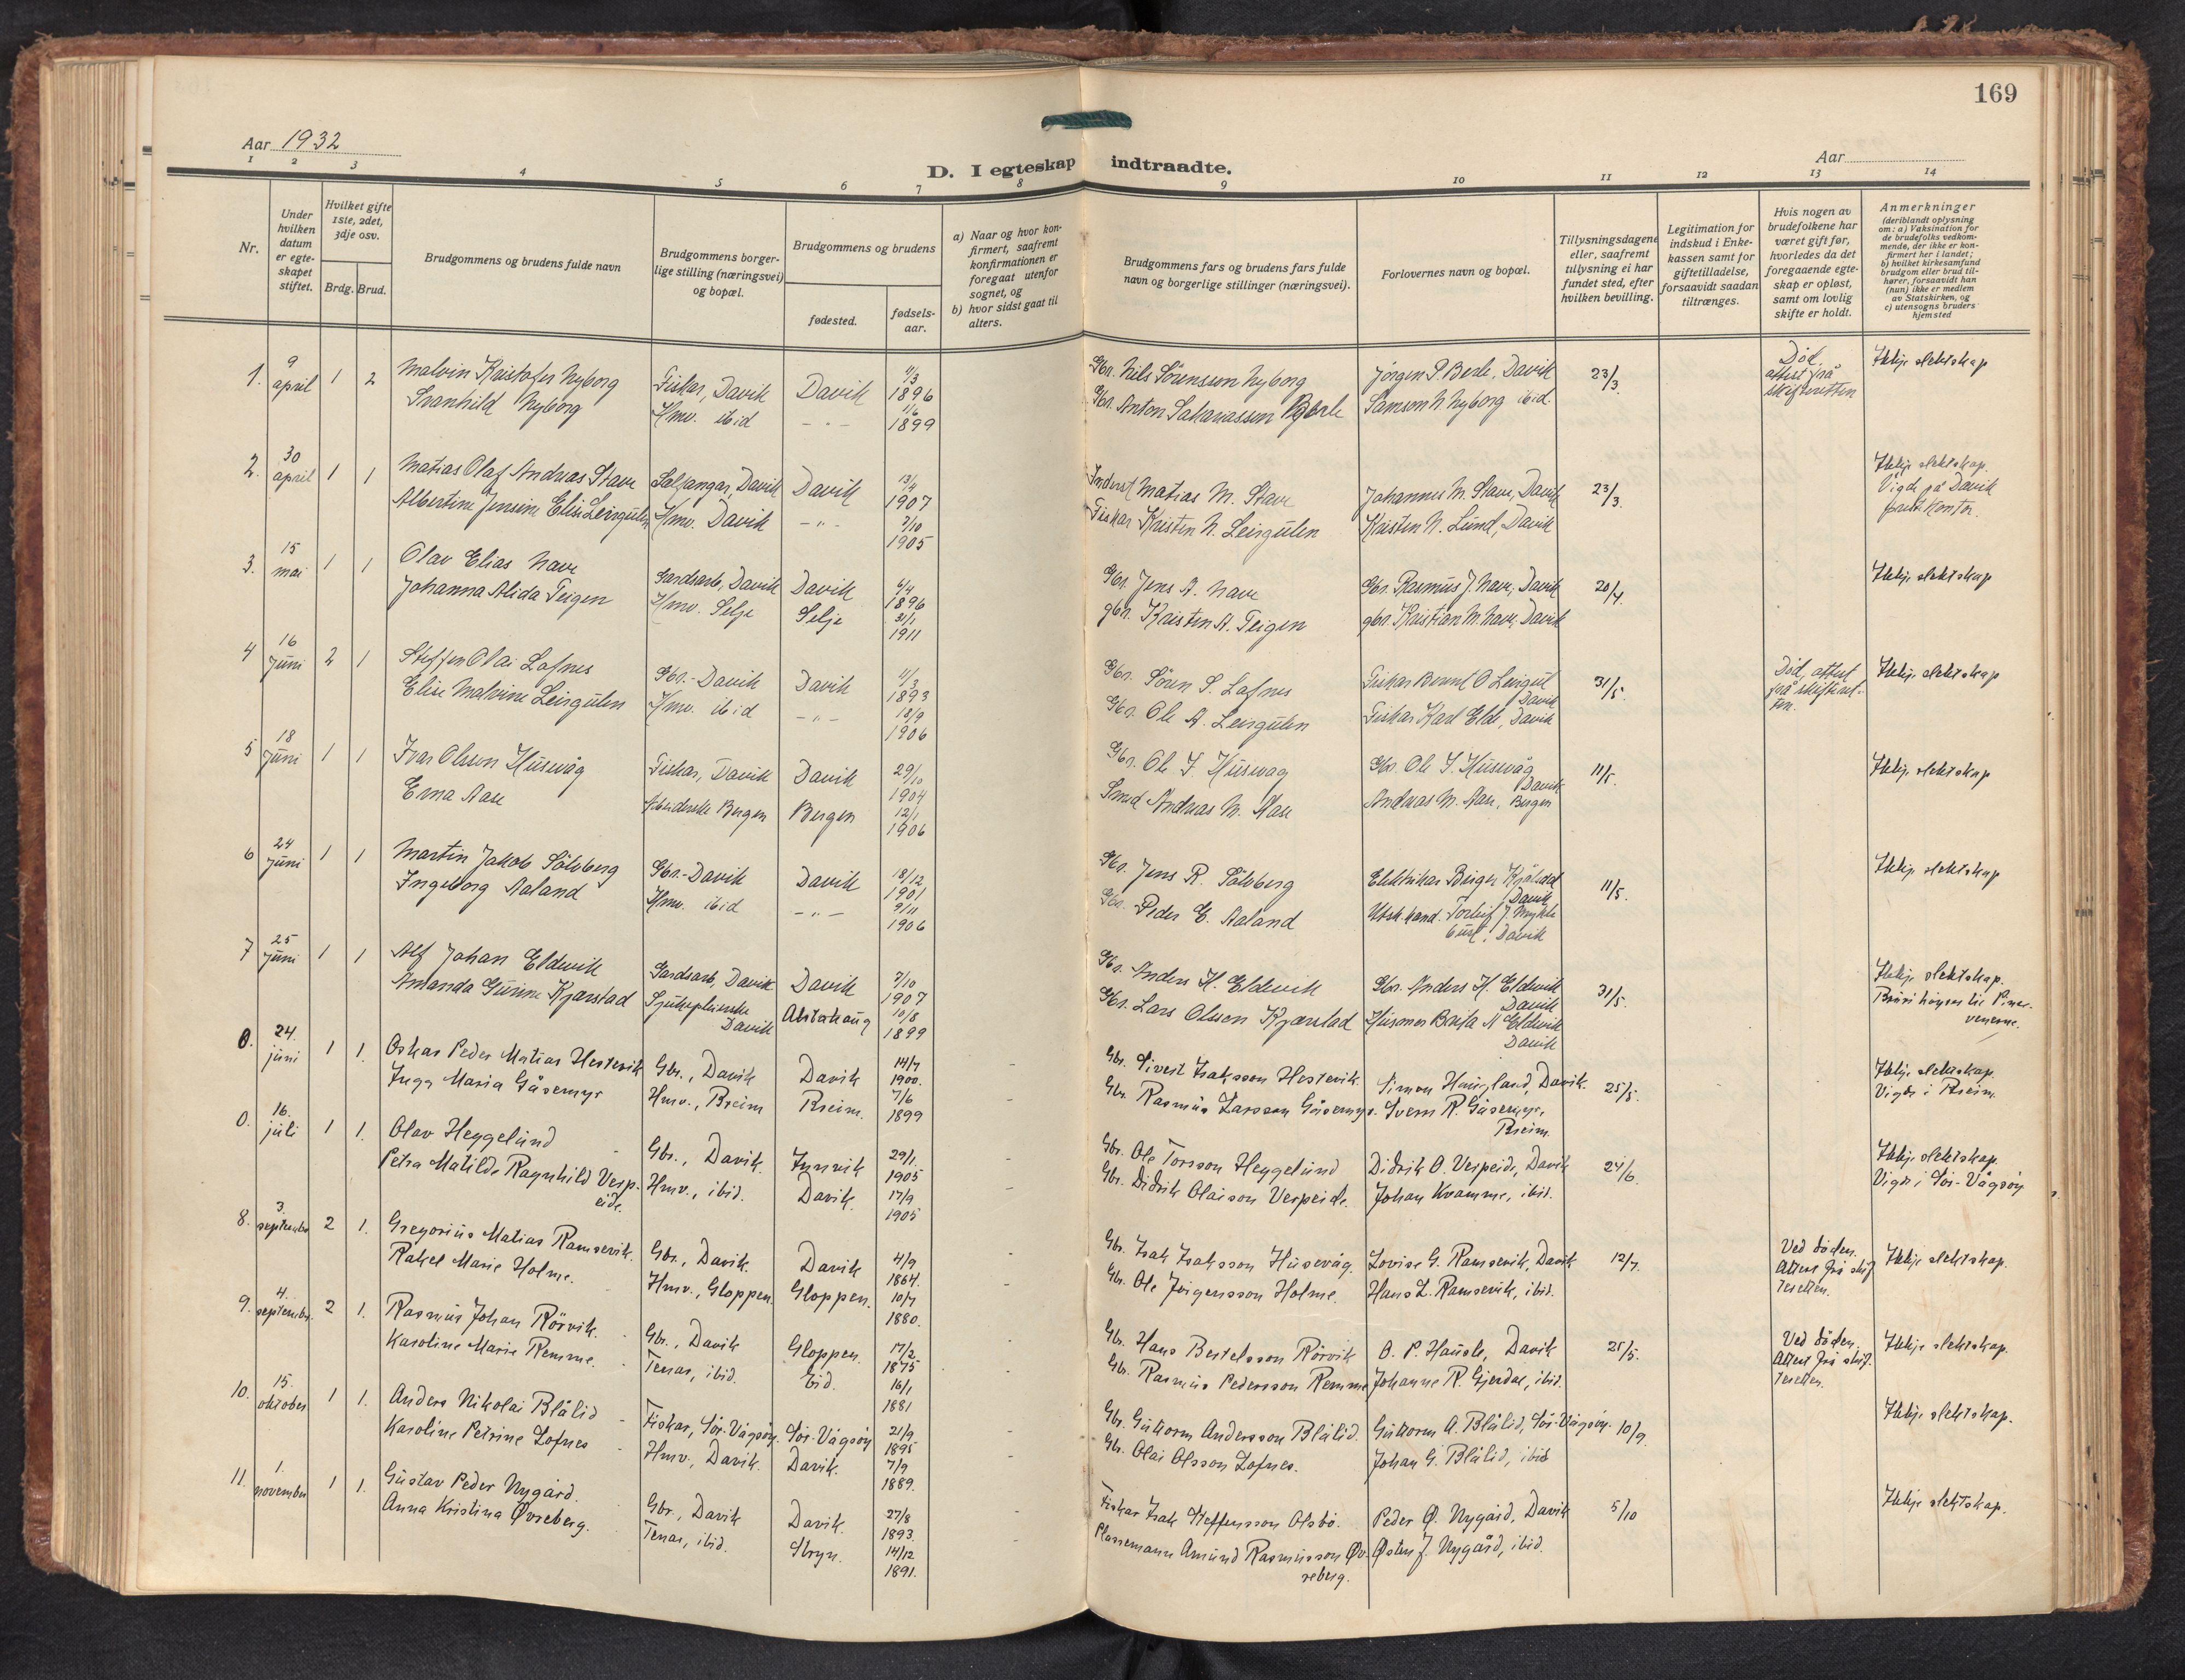 169
Aar 1932
Aar
D. I egteskap indtraadte.
1 2 3 4 5 6 7 8 9 10 11 12 13 14
Nr.
Under hvilken datum er egteskapet stiftet.
Hvilket gifte 1ste, 2det, 3dje osv.
Brdg. Brud.
Brudgommens og brudens fulde navn
Brudgommens borgerlige stilling (næringsvei) og bopæl.
Brudgommens og brudens
fødested.
fødselsaar.
a) Naar og hvor konfirmert, saafremt konfirmationen er foregaat utenfor sognet, og
b) hvor sidst gaat til alters.
Brudgommens fars og brudens fars fulde navn og borgerlige stillinger (næringsvei).
Forlovernes navn og bopæl.
Tillysningsdagene eller, saafremt tillysning ei har fundet sted, efter hvilken bevilling.
Legitimation for indskud i Enkekassen samt for giftetilladelse, forsaavidt saadan tiltrænges.
Hvis nogen av brudefolkene har været gift før, hvorledes da det foregaaende egteskap er opløst, samt om lovlig skifte er holdt.
Anmerkninger
(deriblandt oplysning om: a) Vaksination for de brudefolks vedkommende, der ikke er konfirmert her i landet; b) hvilket kirkesamfund brudgom eller brud tilhører, forsaavidt han (hun) ikke er medlem av Statskirken, og c) utensogns bruders hjemsted
1. 9 april 1 2 Malvin Kristofer Nyborg Fiskar, Davik Davik 11/3 1896 Gbr. Nils Sörensson Nyborg Jörgen P. Berle, Davik 23/3. Död, attest frå skifteretten Ikkje slektskap
Svanhild Nyborg Hmv. ibid - " - 1/6 1899 Gbr. Anton Sakariasson Berle Samson N. Nyborg ibid.
2. 30 april 1 1 Matias Olaf Andreas Stave Davik Davik 13/4 1907 Matias M. Stave Johannes M. Stave, Davik 23/3. Ikkje slektskap. Vigde på Davik kontor.
Albertine Jensine Elise Leirgulen Hmv. Davik - " - 7/10 1905 Fiskar Kristen N. Leirgulen Kristen N. Lund, Davik
3. 15 mai 1 1 Olav Elias Nave Gardsarb, Davik Davik 6/4 1896 Gbr. Jens A. Nave Gbr. Rasmus J. Nave, Davik 20/4. Ikkje slektskap
Johanna Alida Teigen Hmv. Selje Selje 31/1 1911 gbr. Kristen A. Teigen gbr. Kristian M. Nave, Davik
4 16 juni 2 1 Steffen Olai Lofnes Gbr.- Davik Davik 11/3 1893 Gbr. Sören S. Lofnes Fiskar Bernt O Leirgul Davik 31/5. Död, attest frå skifteretten. Ikkje slektskap
Elise Malvine Leirgulen Hmv. ibid - " - 18/9 1906 Gbr. Ole A. Leirgulen Fiskar Karl Elde, Davik
5 18 juni 1 1 Ivar Olsson Husevåg Fiskar, Davik Davik 29/10 1904 Gbr. Ole I. Husevag Gbr. Ole I. Husevåg Davik 11/5. Ikkje slektskap
Erna Aase Bergen Bergen 12/1 1906 Smed Andreas M. Aase Andreas M. Aase, Bergen
6 24 juni 1 1 Martin Jakob Sölvberg Gbr.- Davik Davik 18/12 1901 Gbr. Jens R. Sölvberg Elektrikar Birger Davik 11/5. Ikkje slektskap
Ingeborg Aaland Hmv. ibid - " - 9/11 1906 Gbr. Peder E. Aaland Utsk. hand. Torleif J. Myklebust, Davik
7 25 juni 1 1 Alf Johan Eldevik Gardsarb, Davik Davik 7/10 1907 Gbr. Anders H. Eldevik Gbr. Anders H. Eldevik Davik 31/5. Ikkje slektskap.
Amanda Gurine Kjærstad Sjukepleierske Davik Alstahaug 10/8 1899 Gbr. Lars Olsson Kjærstad Husmor Brita N Eldevik Davik
0. 24. juni 1 1. Oskar Peder Matias Hestevik Gbr., Davik Davik 14/7 1900. Gbr. Sivert Isaksson Hestevik. Simon Haugland, Davik. 25/5. Ikkje slektskap. Vigde i Breim.
Inga Maria Gåsemyr Hmv., Breim Breim. 7/6 1899 Gbr. Rasmus Larsson Gåsemyr. Sveem R. Gåsemyr, Breim.
0. 16. juli 1 1. Olav Heggelund Gbr., Davik. Innvik 29/1 1905 Gbr. Ole Torsson Heggelund Didrik O. Verpeide, Davik 24/6. Ikkje slektskap. Vigde i Sör-Vågsöy
Petra Matilde Ragnhild Verpeide. Hmv., ibid. Davik. 17/9 1905 Gbr. Didrik Olaisson Verpeide. Johan Kvamme, ibid.
8. 3. september 2 1. Gregorius Matias Ramsevik. Gbr., Davik. Davik 4/9 1864. Gbr. Isak Isaksson Husevåg. Lovise G. Ramsevik, Davik 12/7. Ved döden. Attest frå skifteretten. Ikkje slektskap.
Rakel Marie Holme. Hmv., Gloppen. Gloppen. 10/7 1880. Gbr. Ole Jörgensson Holme. Hans L. Ramsevik, ibid.
9. 4. september. 2 1. Rasmus Johan Rörvik. Gbr., Davik Gloppen. 17/2 1875 Gbr. Hans Bertelsson Rörvik O. P. Hausle, Davik 25/5. Ved döden. Attest frå skifteretten. Ikkje slektskap.
Karoline Marie Remme. Tenar, ibid. Eid. 16/1 1881 Gbr. Rasmus Pedersson Remme Johanne R. Gjerdal, ibid.
10. 15. oktober 1 1. Anders Nikolai Blålid Fiskar, Sör-Vågsöy. Sör-Vågsöy 21/9 1895 Gbr. Guttorm Andersson Blålid. Guttorm A. Blålid, Sör-Vågsöy. 10/9. Ikkje slektskap.
Karoline Petrine Lofnes Hmv., Davik. Davik. 7/9 1889. Gbr. Olai Olsson Lofnes. Johan G. Blålid, ibid
11. 1. november 1 1. Gustav Peder Nygård. Gbr., Davik Davik. 27/8 1893. Fiskar Isak Steffensson Olsbö. Peder Ø. Nygård, Davik 5/10 Ikkje slektskap.
Anna Kristina Øvreberg. Tenar, ibid. Stryn. 14/12 1891. Plassemann Amund Rasmusson Øvreberg. Østen J. Nygård, ibid.